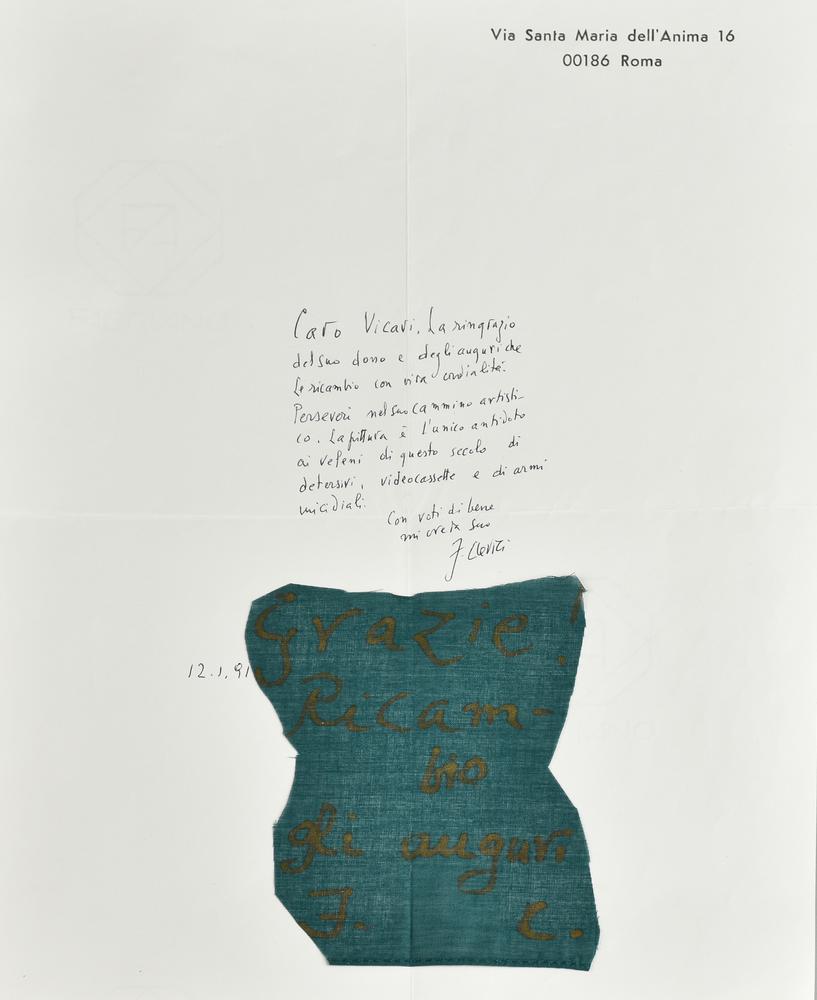 Via Santa Maria dell'Anima 16
00186 Roma
Caro Vicari, La ringrazio
del suo dono e degli auguri che
Le ricambio con viva cordialità.
Perseveri nel suo cammino artisti-
co. La pittura è l'unico antidoto
ai veleni di questo secolo di
detersivi, videocassette e di armi
micidiali.
Con voti di bene
mi creda suo
F. Clerici
12.1.91
Grazie!
Ricam-
bio
gli auguri
F. C.